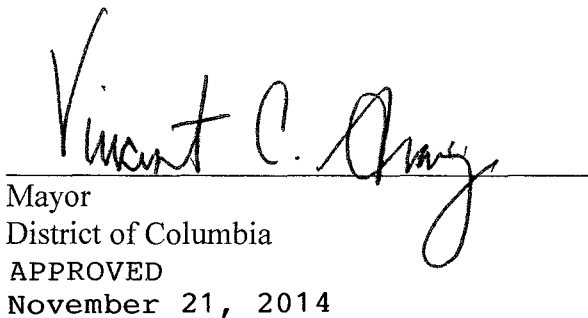 Vincent C. Gray
Mayor
District of Columbia
APPROVED
November 21, 2014